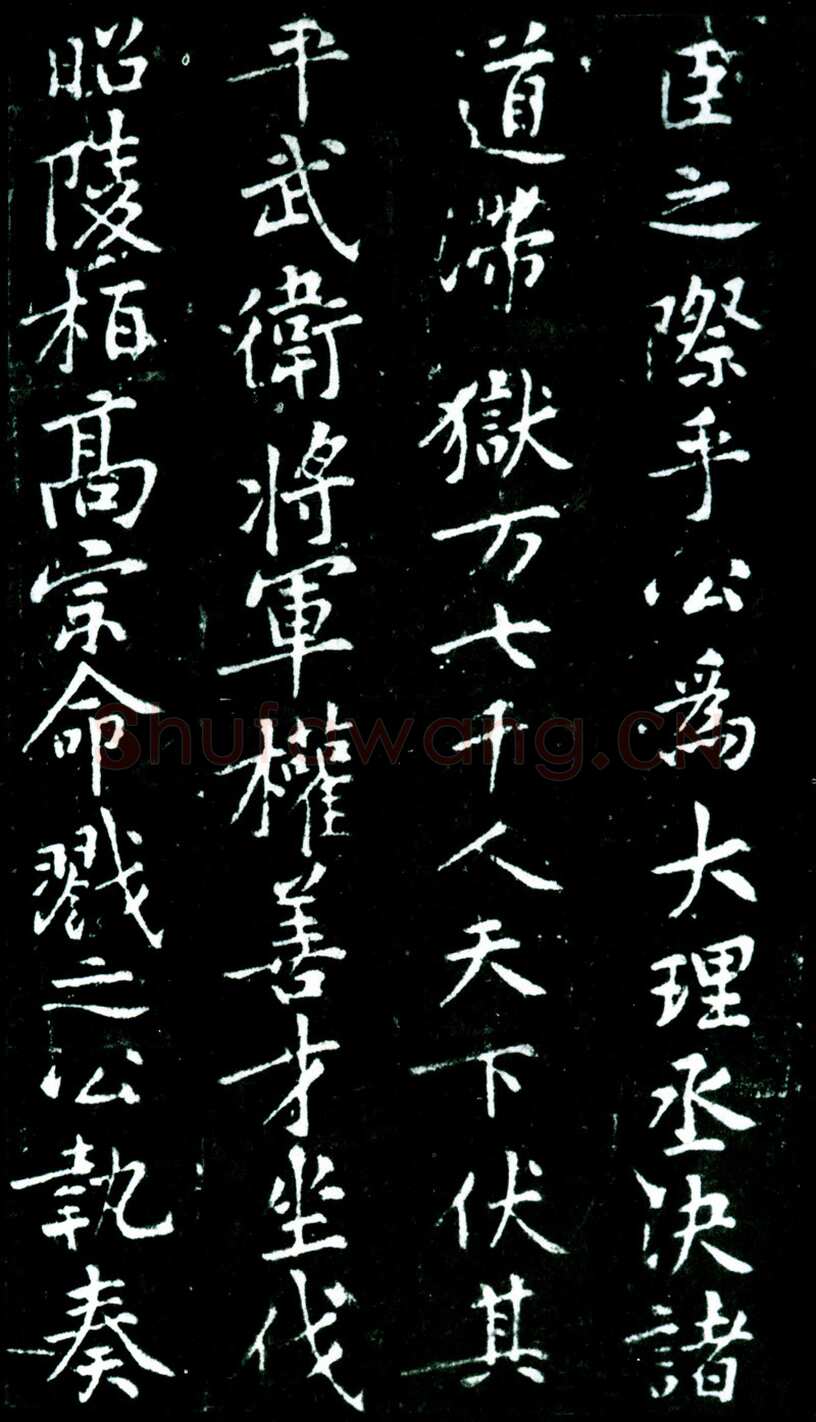 臣之際乎公爲大理丞決諸
道滯獄万七千人天下伏其
平武衛將軍權善才坐伐
昭陵栢髙宗命戮之公執奏
Shufawang.CN